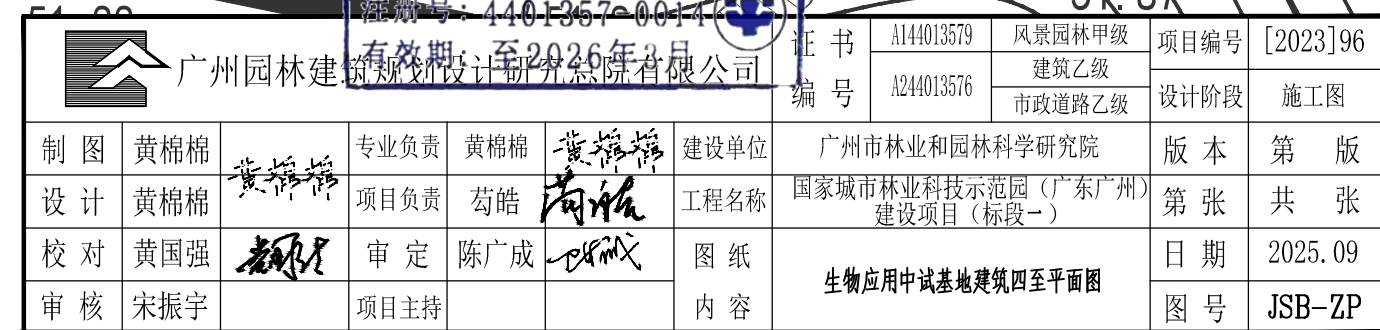 51.
注册号：4401357-0014
有效期：至2026年3月
广州园林建筑规划设计研究总院有限公司
证书编号 A144013579 风景园林甲级 项目编号 [2023]96
A244013576 建筑乙级
市政道路乙级 设计阶段 施工图
制图 黄棉棉 专业负责 黄棉棉 建设单位 广州市林业和园林科学研究院 版本 第 版
设计 黄棉棉 项目负责 芶皓 工程名称 国家城市林业科技示范园（广东广州）
建设项目（标段一） 第张 共 张
校对 黄国强 审定 陈广成 图纸内容 生物应用中试基地建筑四至平面图 日期 2025.09
审核 宋振宇 项目主持 图号 JSB-ZP